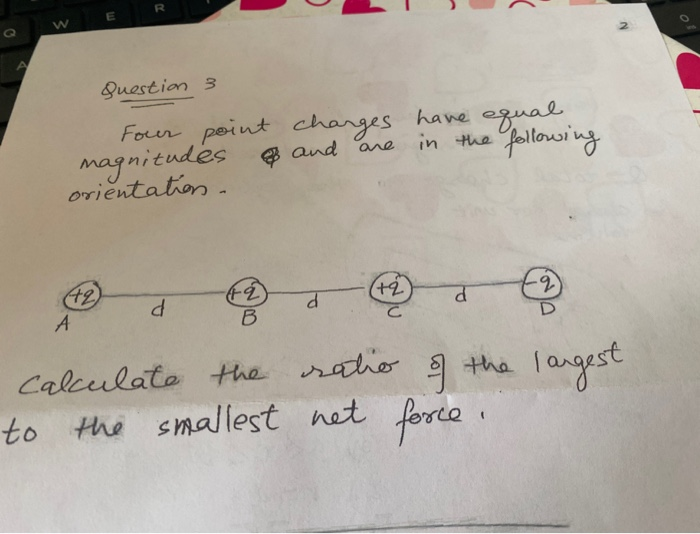 Q W E R
A
2
Question 3
Four point charges have equal
magnitudes and are in the following
orientation.
+q d +q d +q d -q
A B C D
Calculate the ratio of the largest
to the smallest net force.